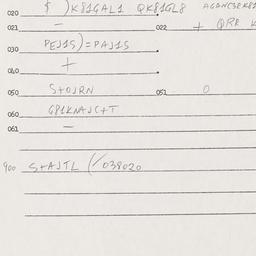 020 $ )K81GAL1 QK81GL8 AGANC3RK81
021 - 022 + QRR K
030 PEJ1S)=PAJ1S
040 +
050 S+OJRN 051 0
060 G81KNAJC+T
061 -
900 S+AJTL (/038020